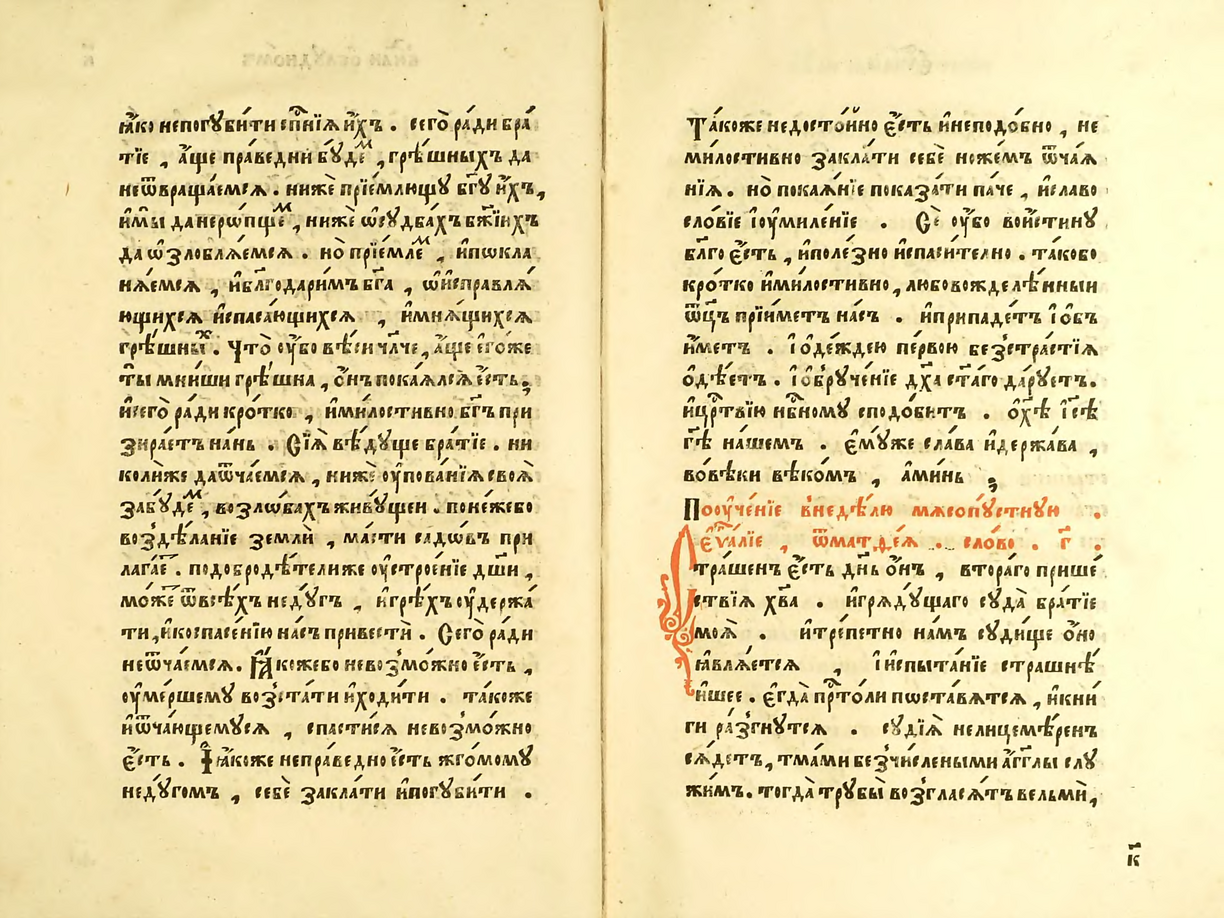 ꙗ҆́ко непогꙋби́ти сп҃нїѧ и҆́хъ . сего̀ ра́ди бра́
тїе , а҆́ще пра́ведни бꙋ́деⷨ , грѣ́шныхъ да
неѿвраща́емсѧ . нижѐ прїе́млющꙋ бг҃ꙋ и҆́хъ ,
и҆мы̀ да неро́пщеⷨ , нижѐ ѡ҆сꙋдба́хъ бж҃їихъ
да ѡ҆злобла́емсѧ . но̀ прїе́млеⷨ , и҆покла
нѧ́емсѧ , и҆блг҃одари́мъ бг҃а , ѡ҆и҆справлѧ́
ющихсѧ и҆спаса́ющихсѧ , и҆мнѧ́щихсѧ
грѣ́шныⷯ . Что̀ ѹ҆́бо вѣ́си чл҃че , а҆́ще є҆го́же
ты̀ мни́ши грѣ́шна , ѻ҆́нъ пока́ѧлсѧ є҆́сть ,
и҆сего̀ ра́ди кро́тко , и҆ми́лостивно бг҃ъ при
зира́етъ на́нь . Сїѧ̀ вѣ́дꙋще бра́тїе . ни
коли́же даѿча́емсѧ , нижѐ ѹ҆пова́нїѧ своѧ̀
забꙋ́деⷨ , возло́бахъ живꙋ́щеи . поне́жебо
воз̾дѣ́ланїе землѝ , ма́сти садо́въ при
лага́еⷮ . подобродѣ́телиже ѹ҆строе́нїе дш҃и ,
мо́жеⷮ ѿвсѣ́хъ недꙋ́гъ , и҆грѣ́хъ ѹ҆держа́
ти , и҆коспасе́нїю на́съ привестѝ . Сего̀ ра́ди
неѿча́емсѧ . Ꙗ҆́кожебо невоз̾мо́жно є҆́сть ,
ѹ҆ме́ршемꙋ воз̾ста́ти и҆ходи́ти . та́коже
и҆ѿча́ющемꙋсѧ , спасти́сѧ невоз̾мо́жно
є҆́сть . І҆ꙗ҆́коже непра́ведно є҆́сть жго́момꙋ
недꙋ́гомъ , себѐ закла́ти и҆погꙋби́ти .
Та́коже недосто́йно є҆́сть и҆неподо́бно , не
ми́лостивно закла́ти себѐ ноже́мъ ѿча́ѧ
нїѧ . но̀ покаѧ́нїе показа́ти па́че , и҆славо
сло́вїе і҆ѹ҆миле́нїе . Сѐ ѹ҆́бо вои҆́стинꙋ
бл҃го є҆́сть , и҆поле́зно и҆спаси́телно . та́ково
кро́тко и҆ми́лостивно , любовожделѣ́нныи
ѿц҃ъ прїи́метъ на́съ . и҆припаде́тъ і҆ѡбъ
и҆́метъ . і҆ѻде́ждею пе́рвою без̾стра́стїѧ
ѻ҆дѣ́етъ . і҆ѻбрꙋче́нїе дх҃а ст҃а́го да́рꙋетъ .
и҆црⷭ҇твїю нбⷭ҇номꙋ сподо́битъ . ѻ҆хⷭ҇ѣ і҆с҃ѣ
гдⷭ҇ѣ на́шемъ . є҆мꙋ́же сла́ва и҆держа́ва ,
вовѣ́ки вѣко́мъ , а҆ми́нь ,
Поѹ҆че́нїе в̾недѣ́лю мѧсопꙋ́стнꙋю .
є҆ѵⷢ҇а́лїе , ѿматѳе́ѧ . сло́во . г҃ .
Стра́шенъ є҆́сть дн҃ь ѻ҆́нъ , втора́го прише́
ствїѧ хв҃а . и҆грѧдꙋ́щаго сꙋда̀ бра́тїе
моѧ̀ . и҆тре́петно на́мъ сꙋди́ще ѻ҆но̀
ꙗ҆влѧ́етсѧ , і҆и҆спыта́нїе страшнѣ́
йшее . є҆гда̀ прⷭ҇то́ли поста́вѧтсѧ , и҆кни́
ги раз̾гнꙋ́тсѧ . сꙋдїѧ̀ нелицемѣ́ренъ
сѧ́детъ , тмами без̾чи́слеными а҆́гг҃лы слꙋ
жи́мъ . тогда̀ трꙋбы̀ воз̾гласѧ́тъ вельмѝ ,
к҃